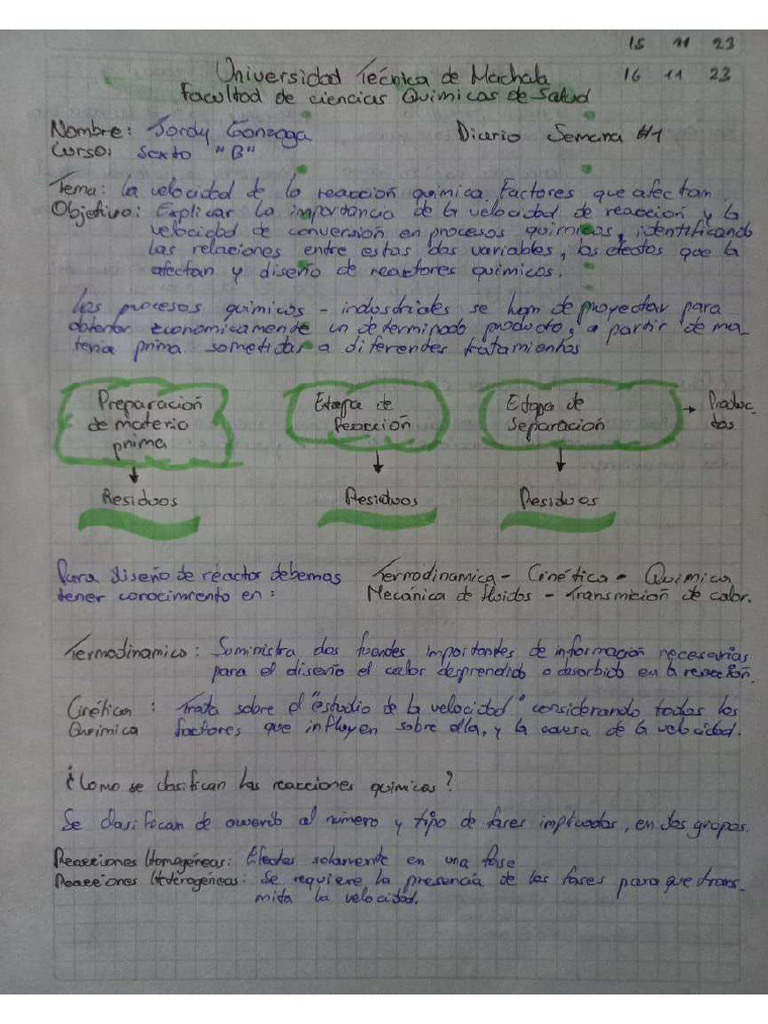 15 11 23
Universidad Técnica de Machala 16 11 23
Facultad de ciencias Quimicas de Salud
Nombre: Jordy Gonzaga Diario Semana #1
Curso: Sexto "B"
Tema: La velocidad de la reaccion quimica. Factores que afectan
Objetivo: Explicar la importancia de la velocidad de reaccion y la
velocidad de conversión en procesos quimicos, identificando
las relaciones entre estas dos variables, los efectos que la
afectan y diseño de reactores quimicos.
Los procesos quimicos - industriales se han de proyectar para
obtener economicamente un determinado producto, a partir de ma-
teria prima sometidas a diferentes tratamientos
Preparación
de materia
prima
Etapa de
Reacción
Etapa de
Separación
Produc-
tos
Residuos Residuos Residuos
Para diseño de reactor debemos
tener conocimiento en:
Termodinamica - Cinética - Quimica
Mecánica de fluidos - Transmición de calor.
Termodinamica: Suministra dos fuentes importantes de información necesarias
para el diseño el calor desprendido o absorbido en la reacción.
Cinética : Trata sobre el "estudio de la velocidad" considerando todos los
Quimica factores que influyen sobre ella, y la causa de la velocidad.
¿Como se clasifican las reacciones quimicas?
Se clasifican de acuerdo al número y tipo de fases implicadas, en dos grupos.
Reacciones Homogéneas: Efectos solamente en una fase
Reacciones Heterogéneas: Se requiere la presencia de los fases para que trans-
mita la velocidad.